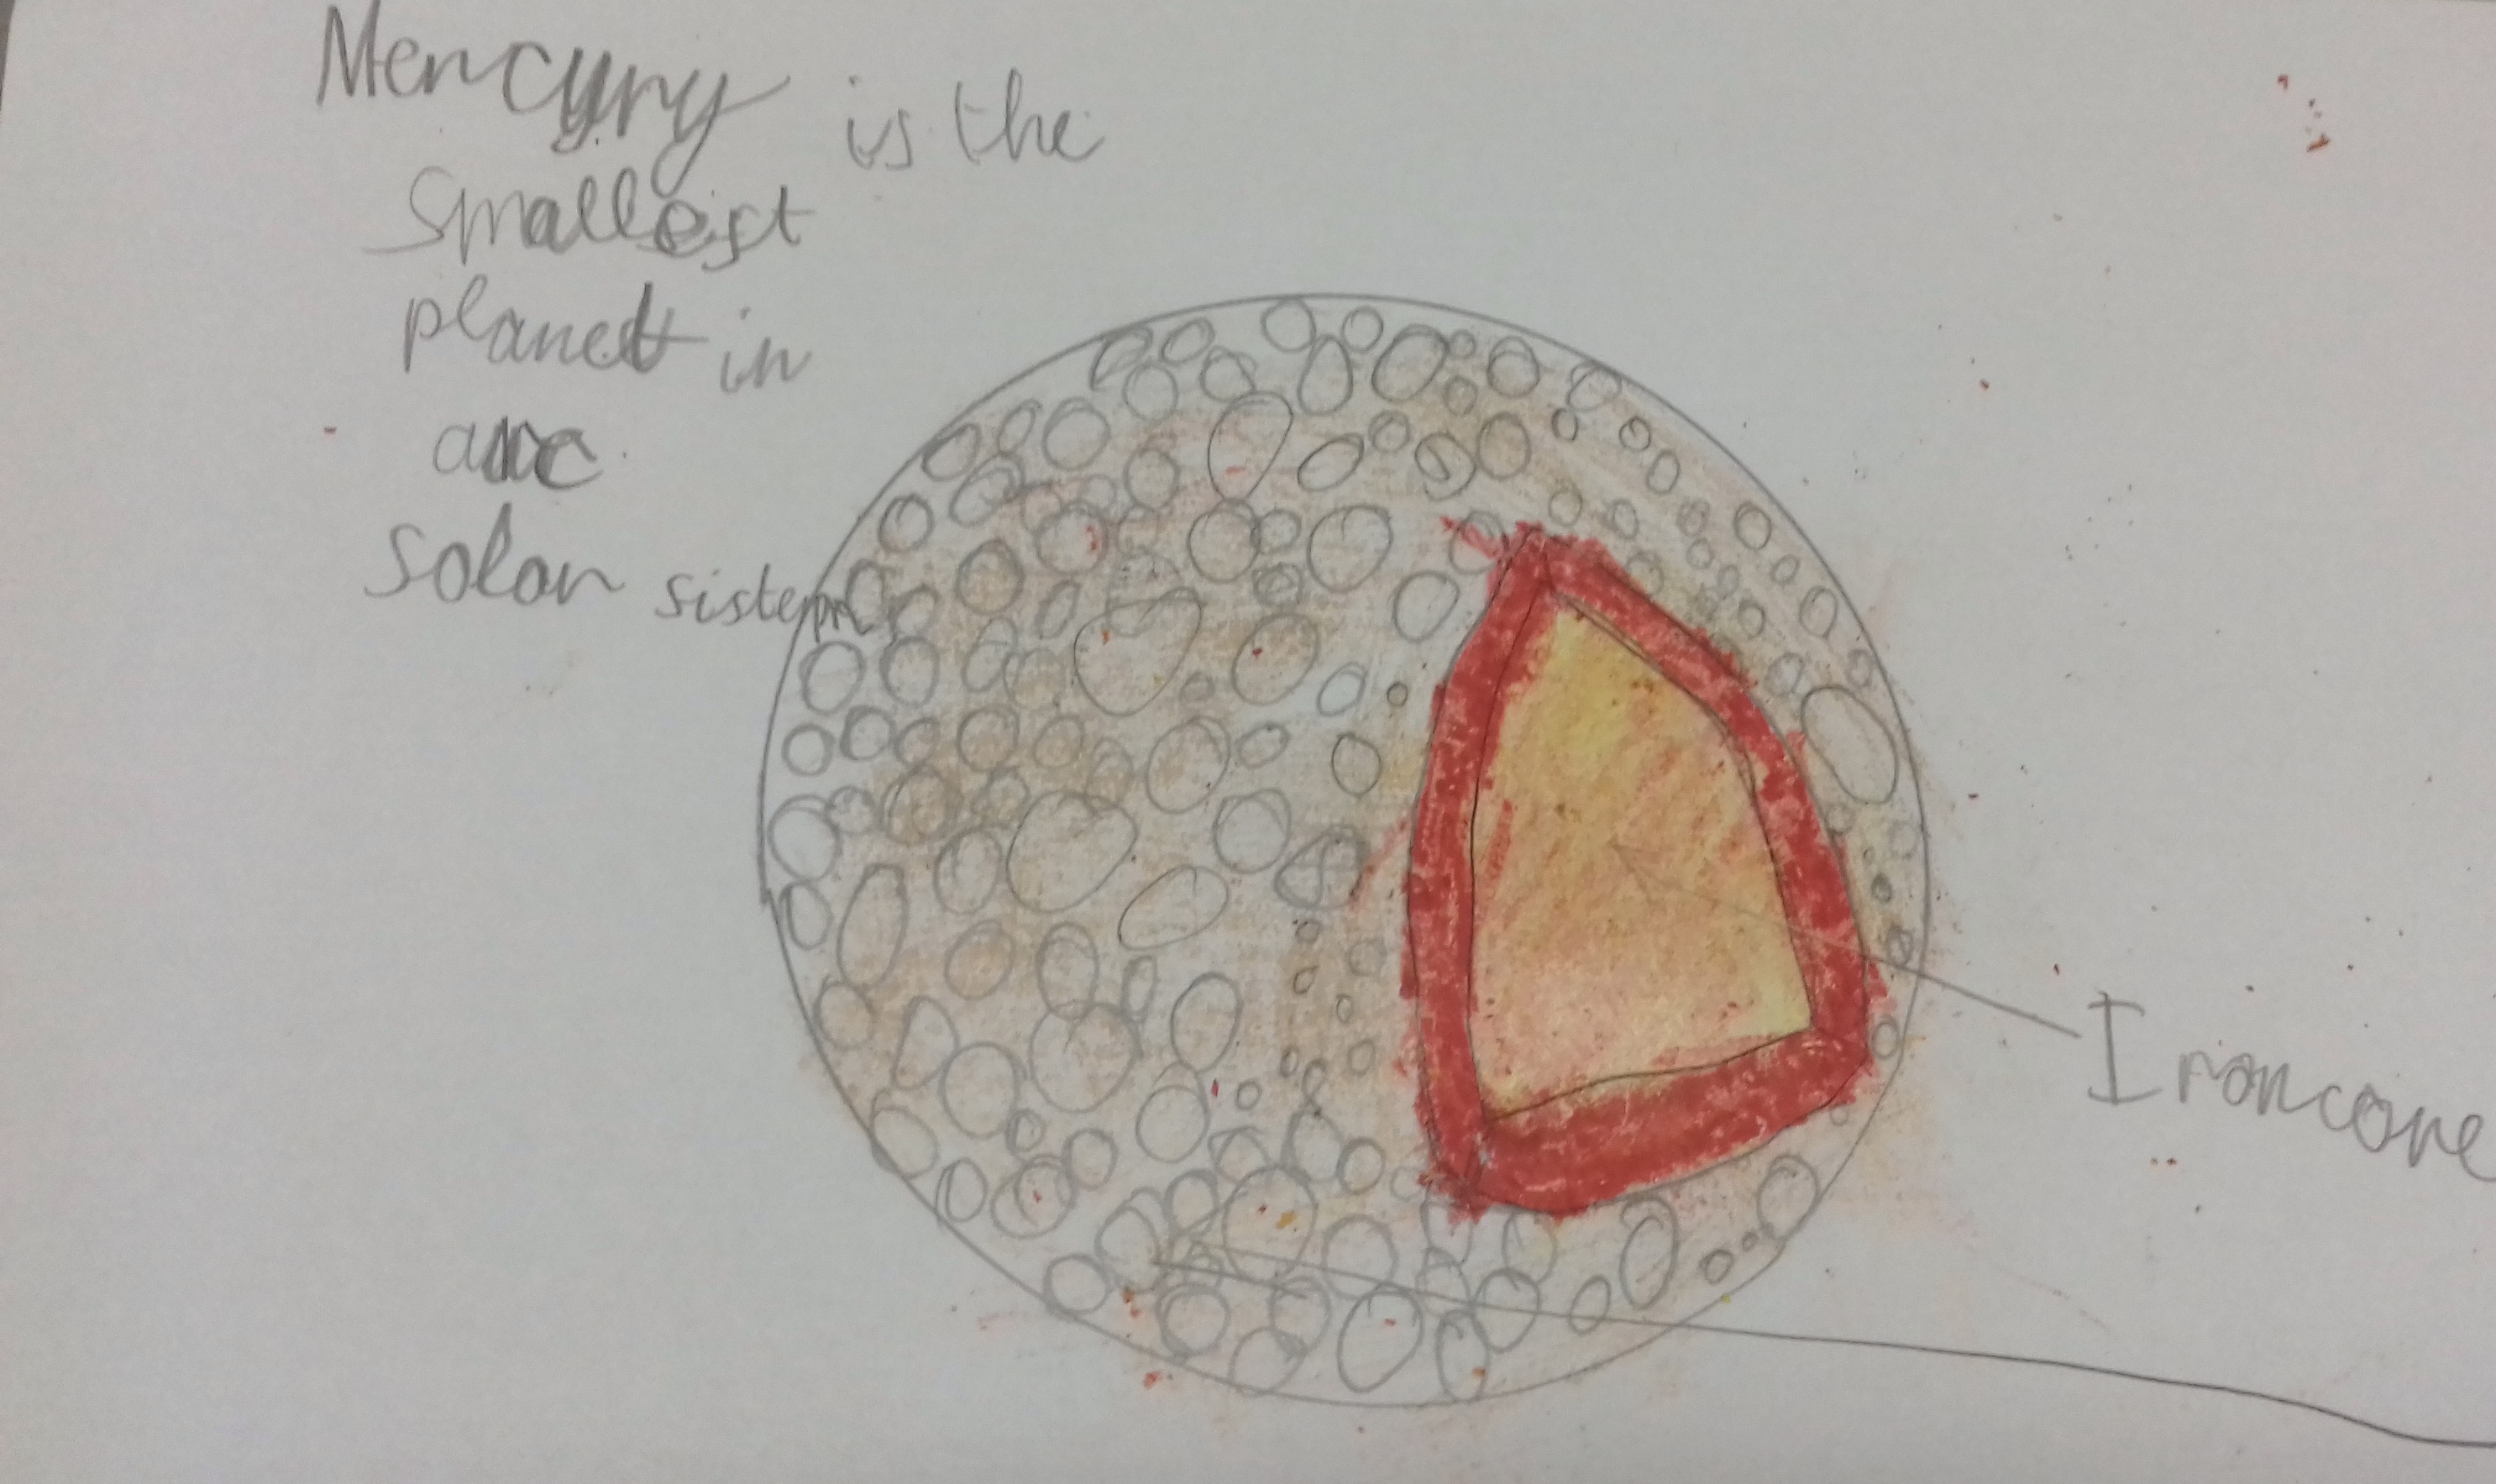 Mercury is the
smallest
planet in
are
solar sistem
Iron core